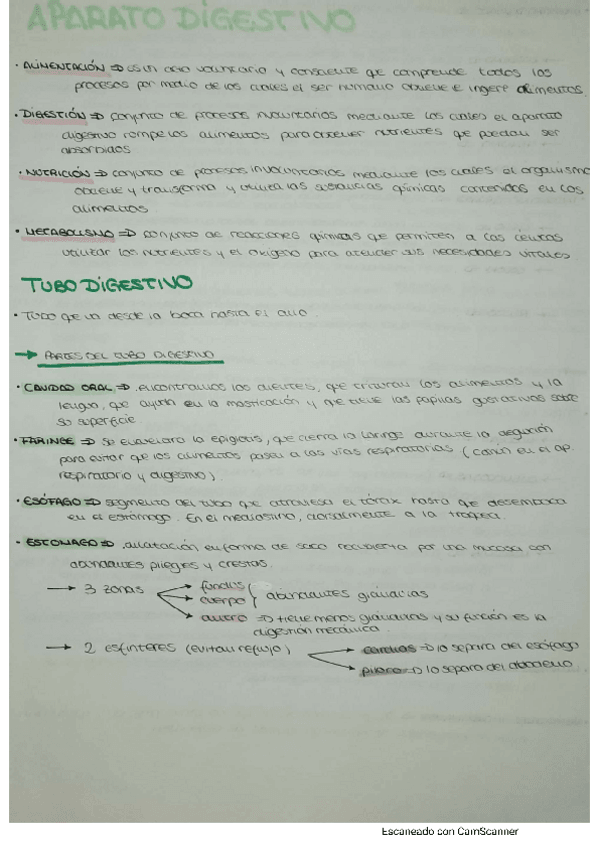 APARATO DIGESTIVO
· ALIMENTACIÓN => es un acto voluntario y consciente que comprende todos los
procesos por medio de los cuales el ser humano obtiene e ingere alimentos.
· DIGESTIÓN => conjunto de procesos involuntarios mediante los cuales el aparato
digestivo rompe los alimentos para obtener nutrientes que puedan ser
absorbidos
· NUTRICIÓN => conjunto de procesos involuntarios mediante los cuales el organismo
obtiene y transforma y utiliza las sustancias químicas contenidas en los
alimentos.
· METABOLISMO => conjunto de reacciones químicas que permiten a las células
utilizar los nutrientes y el oxígeno para atender sus necesidades vitales.
TUBO DIGESTIVO
· Tubo que va desde la boca hasta el ano.
→ PARTES DEL TUBO DIGESTIVO
· CAVIDAD ORAL => encontramos los dientes, que trituran los alimentos y la
lengua, que ayuda en la masticación y que tiene las papilas gustativas sobre
su superficie.
· FARINGE => Se encuentra la epiglotis, que cierra la laringe durante la deglución
para evitar que los alimentos pasen a las vías respiratorias (común en el ap.
respiratorio y digestivo).
· ESÓFAGO => segmento del tubo que atraviesa el tórax hasta que desemboca
en el estómago. En el mediastino, dorsalmente a la tráquea.
· ESTÓMAGO => dilatación en forma de saco recubierta por una mucosa con
abundantes pliegues y crestas.
→ 3 zonas → fundus
→ cuerpo } abundantes glándulas
→ antro => tiene menos glándulas y su función es la
digestión mecánica.
→ 2 esfínteres (evitan reflujo) → cardias => lo separa del esófago
→ píloro => lo separa del duodeno
Escaneado con CamScanner